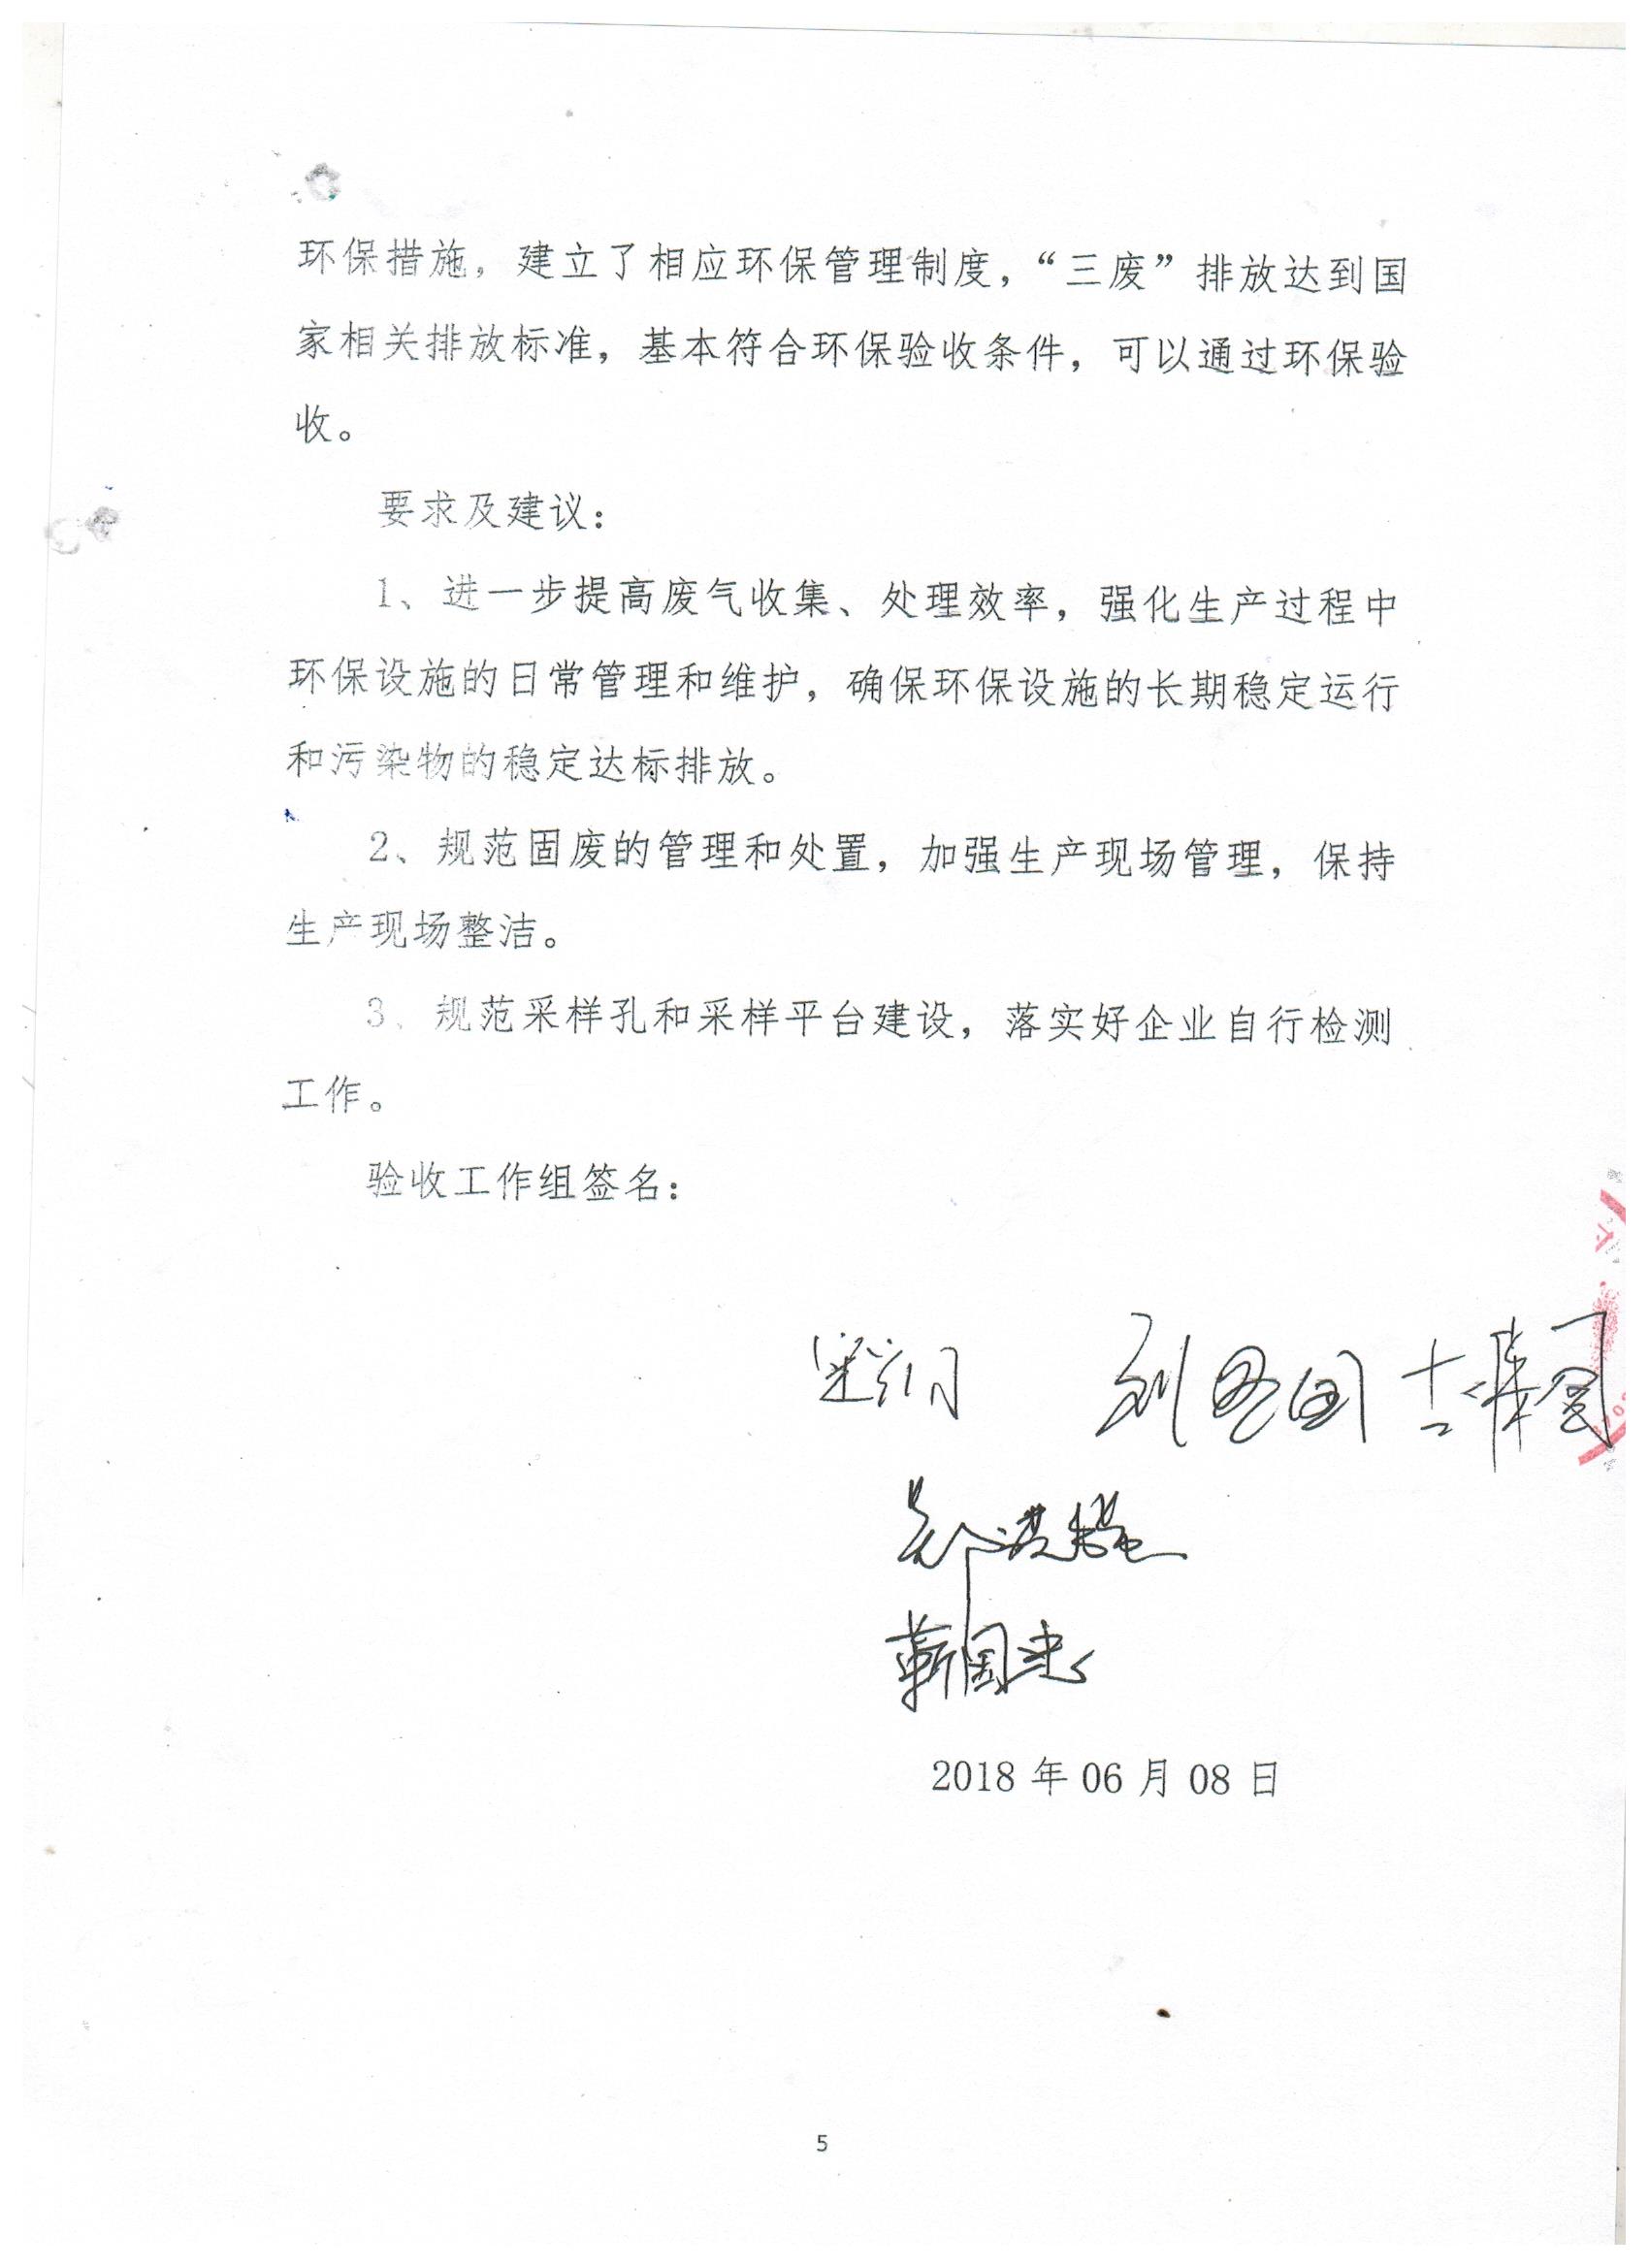 环保措施，建立了相应环保管理制度，“三废”排放达到国
家相关排放标准，基本符合环保验收条件，可以通过环保验
收。
要求及建议：
1、进一步提高废气收集、处理效率，强化生产过程中
环保设施的日常管理和维护，确保环保设施的长期稳定运行
和污染物的稳定达标排放。
2、规范固废的管理和处置，加强生产现场管理，保持
生产现场整洁。
3、规范采样孔和采样平台建设，落实好企业自行检测
工作。
验收工作组签名：
2018 年 06 月 08 日
5